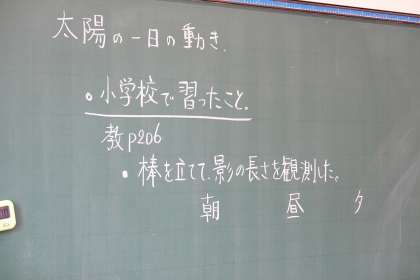 太陽の一日の動き.
・小学校で習ったこと。
教p206
・棒を立てて、影の長さを観測した。
朝 昼 夕